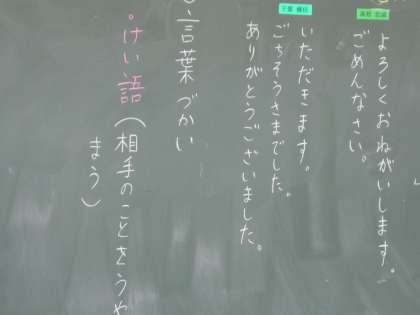 よろしくおねがいします。
ごめんなさい。
いただきます。
ごちそうさまでした。
ありがとうございました。
言葉づかい
・けい語(相手のことをうや
まう)